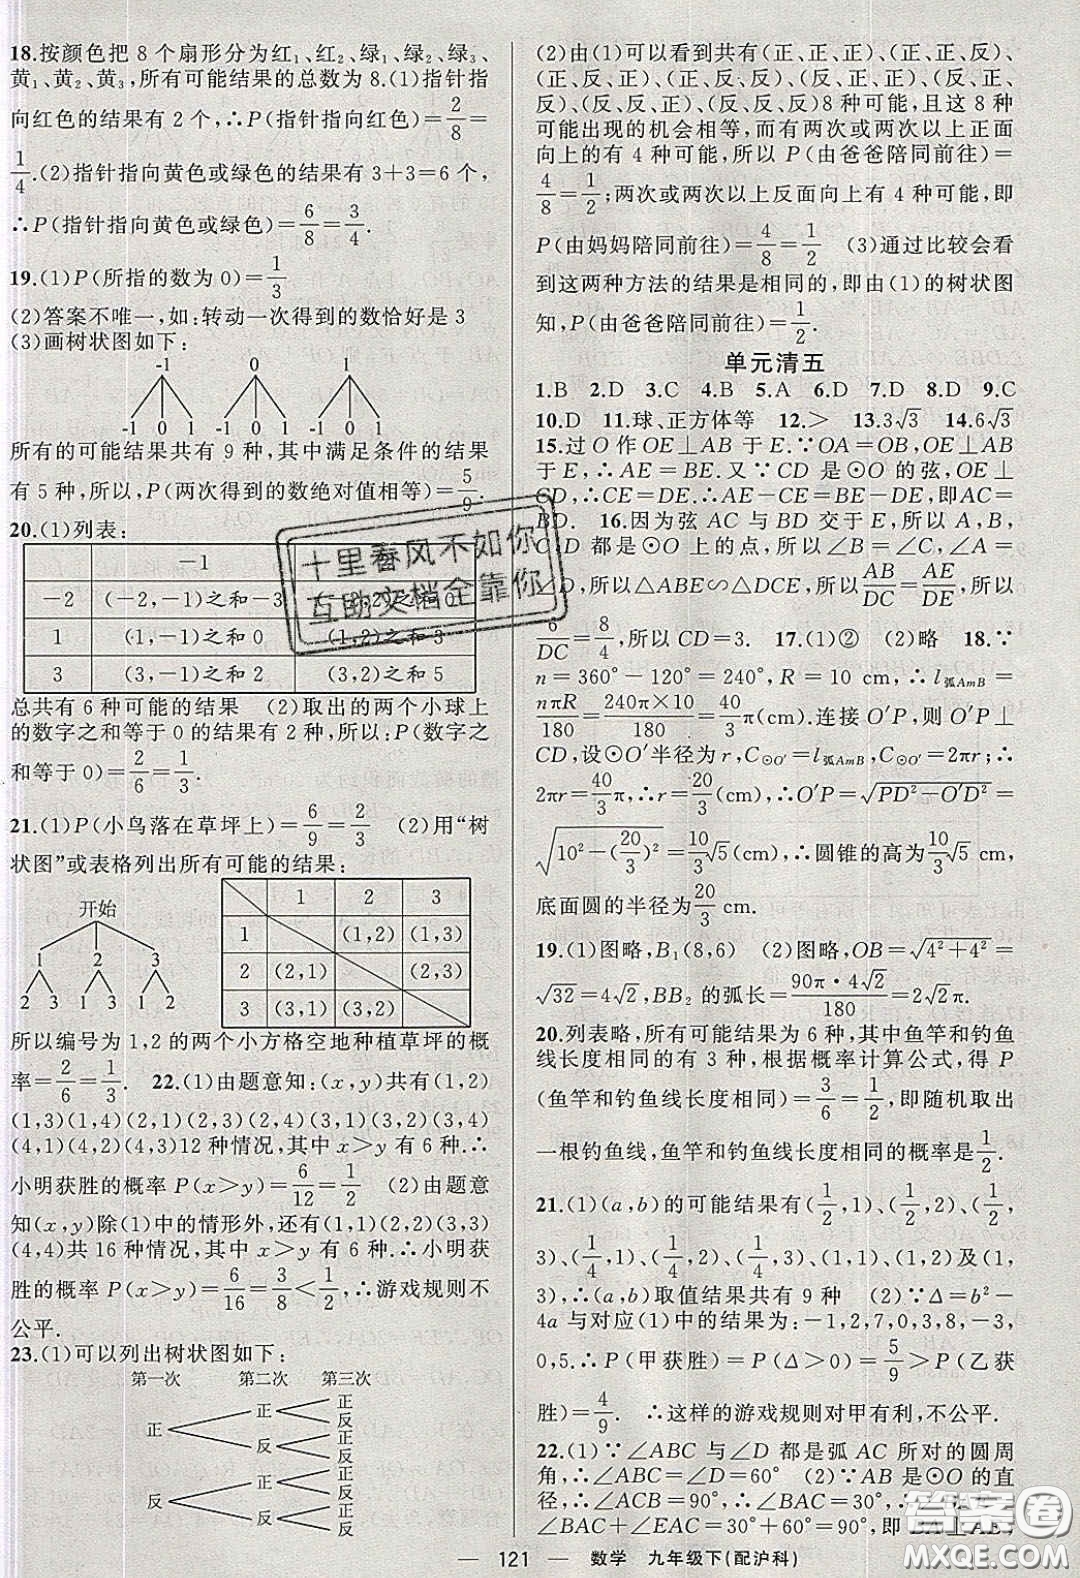 18.按颜色把 8 个扇形分为红₁、红₂、绿₁、绿₂、绿₃、
黄₁、黄₂、黄₃,所有可能结果的总数为 8.(1)指针指
向红色的结果有 2 个,∴P(指针指向红色)=2/8=
1/4.(2)指针指向黄色或绿色的结果有 3+3=6 个,
∴P(指针指向黄色或绿色)=6/8=3/4.
19.(1)P(所指的数为 0)=1/3
(2)答案不唯一,如:转动一次得到的数恰好是 3
(3)画树状图如下:
-1 0 1
-1 0 1 -1 0 1 -1 0 1
所有的可能结果共有 9 种,其中满足条件的结果
有 5 种,所以,P(两次得到的数绝对值相等)=5/9.
20.(1)列表:
-1
-2 (-2,-1)之和-3
1 (1,-1)之和 0 (1,2)之和 3
3 (3,-1)之和 2 (3,2)之和 5
总共有 6 种可能的结果 (2)取出的两个小球上
的数字之和等于 0 的结果有 2 种,所以:P(数字之
和等于 0)=2/6=1/3.
21.(1)P(小鸟落在草坪上)=6/9=2/3 (2)用“树
状图”或表格列出所有可能的结果:
开始
1 2 3
2 3 1 3 1 2
1 2 3
1 (1,2) (1,3)
2 (2,1) (2,3)
3 (3,1) (3,2)
所以编号为 1,2 的两个小方格空地种植草坪的概
率=2/6=1/3. 22.(1)由题意知:(x,y)共有(1,2)
(1,3)(1,4)(2,1)(2,3)(2,4)(3,1)(3,2)(3,4)
(4,1)(4,2)(4,3)12 种情况,其中 x>y 有 6 种.∴
小明获胜的概率 P(x>y)=6/12=1/2 (2)由题意
知(x,y)除(1)中的情形外,还有(1,1)(2,2)(3,3)
(4,4)共 16 种情况,其中 x>y 有 6 种.∴小明获
胜的概率 P(x>y)=6/16=3/8<1/2,∴游戏规则不
公平.
23.(1)可以列出树状图如下:
第一次 第二次 第三次
正 正 正
反
反 正
反
反 正 正
反
反 正
反
(2)由(1)可以看到共有(正、正、正)、(正、正、反)、
(正、反、正)、(正、反、反)、(反、正、正)、(反、正、
反)、(反、反、正)、(反、反、反)8 种可能,且这 8 种
可能出现的机会相等,而有两次或两次以上正面
向上的有 4 种可能,所以 P(由爸爸陪同前往)=
4/8=1/2;两次或两次以上反面向上有 4 种可能,即
P(由妈妈陪同前往)=4/8=1/2 (3)通过比较会看
到这两种方法的结果是相同的,即由(1)的树状图
知,P(由爸爸陪同前往)=1/2.
单元清五
1.B 2.D 3.C 4.B 5.A 6.D 7.D 8.D 9.C
10.D 11.球、正方体等 12.> 13.3√3 14.6√3
15.过 O 作 OE⊥AB 于 E.∵OA=OB,OE⊥AB
于 E,∴AE=BE.又∵CD 是⊙O 的弦,OE⊥
CD,∴CE=DE.∴AE-CE=BE-DE,即AC=
BD. 16.因为弦 AC 与 BD 交于 E,所以 A,B,
C,D 都是⊙O 上的点,所以∠B=∠C,∠A=
∠D,所以△ABE∽△DCE,所以AB/DC=AE/DE,所以
6/DC=8/4,所以 CD=3. 17.(1)② (2)略 18.∵
n=360°-120°=240°,R=10 cm,∴l弧AmB=
nπR/180=240π×10/180=40/3π(cm).连接 O′P,则 O′P⊥
CD,设⊙O′半径为 r,C⊙O′=l弧AmB,C⊙O′=2πr;∴
2πr=40/3π,∴r=20/3(cm),∴O′P=√(PD²-O′D²)=
√(10²-(20/3)²)=10/3√5(cm);∴圆锥的高为10/3√5 cm,
底面圆的半径为20/3 cm.
19.(1)图略,B₁(8,6) (2)图略,OB=√(4²+4²)=
√32=4√2,BB₂ 的弧长=90π·4√2/180=2√2π.
20.列表略,所有可能结果为 6 种,其中鱼竿和钓鱼
线长度相同的有 3 种,根据概率计算公式,得 P
(鱼竿和钓鱼线长度相同)=3/6=1/2,即随机取出
一根钓鱼线,鱼竿和钓鱼线长度相同的概率是1/2.
21.(1)(a,b)的可能结果有(1/2,1)、(1/2,2)、(1/2,
3)、(1/4,1)、(1/4,2)、(1/4,3)、(1,1)、(1,2)及(1,
3),∴(a,b)取值结果共有 9 种 (2)∵Δ=b²-
4a 与对应(1)中的结果为:-1,2,7,0,3,8,-3,
0,5.∴P(甲获胜)=P(Δ>0)=5/9>P(乙获
胜)=4/9. ∴这样的游戏规则对甲有利,不公平.
22.(1)∵∠ABC 与∠D 都是弧 AC 所对的圆周
角,∴∠ABC=∠D=60° (2)∵AB 是⊙O 的直
径,∴∠ACB=90°,∴∠BAC=30°,∴∠BAE=
∠BAC+∠EAC=30°+60°=90°,即 BA⊥AE,
— 121 — 数学 九年级下(配沪科)
十里春风不如你
互助文档全靠你
答案圈
MXQE.COM